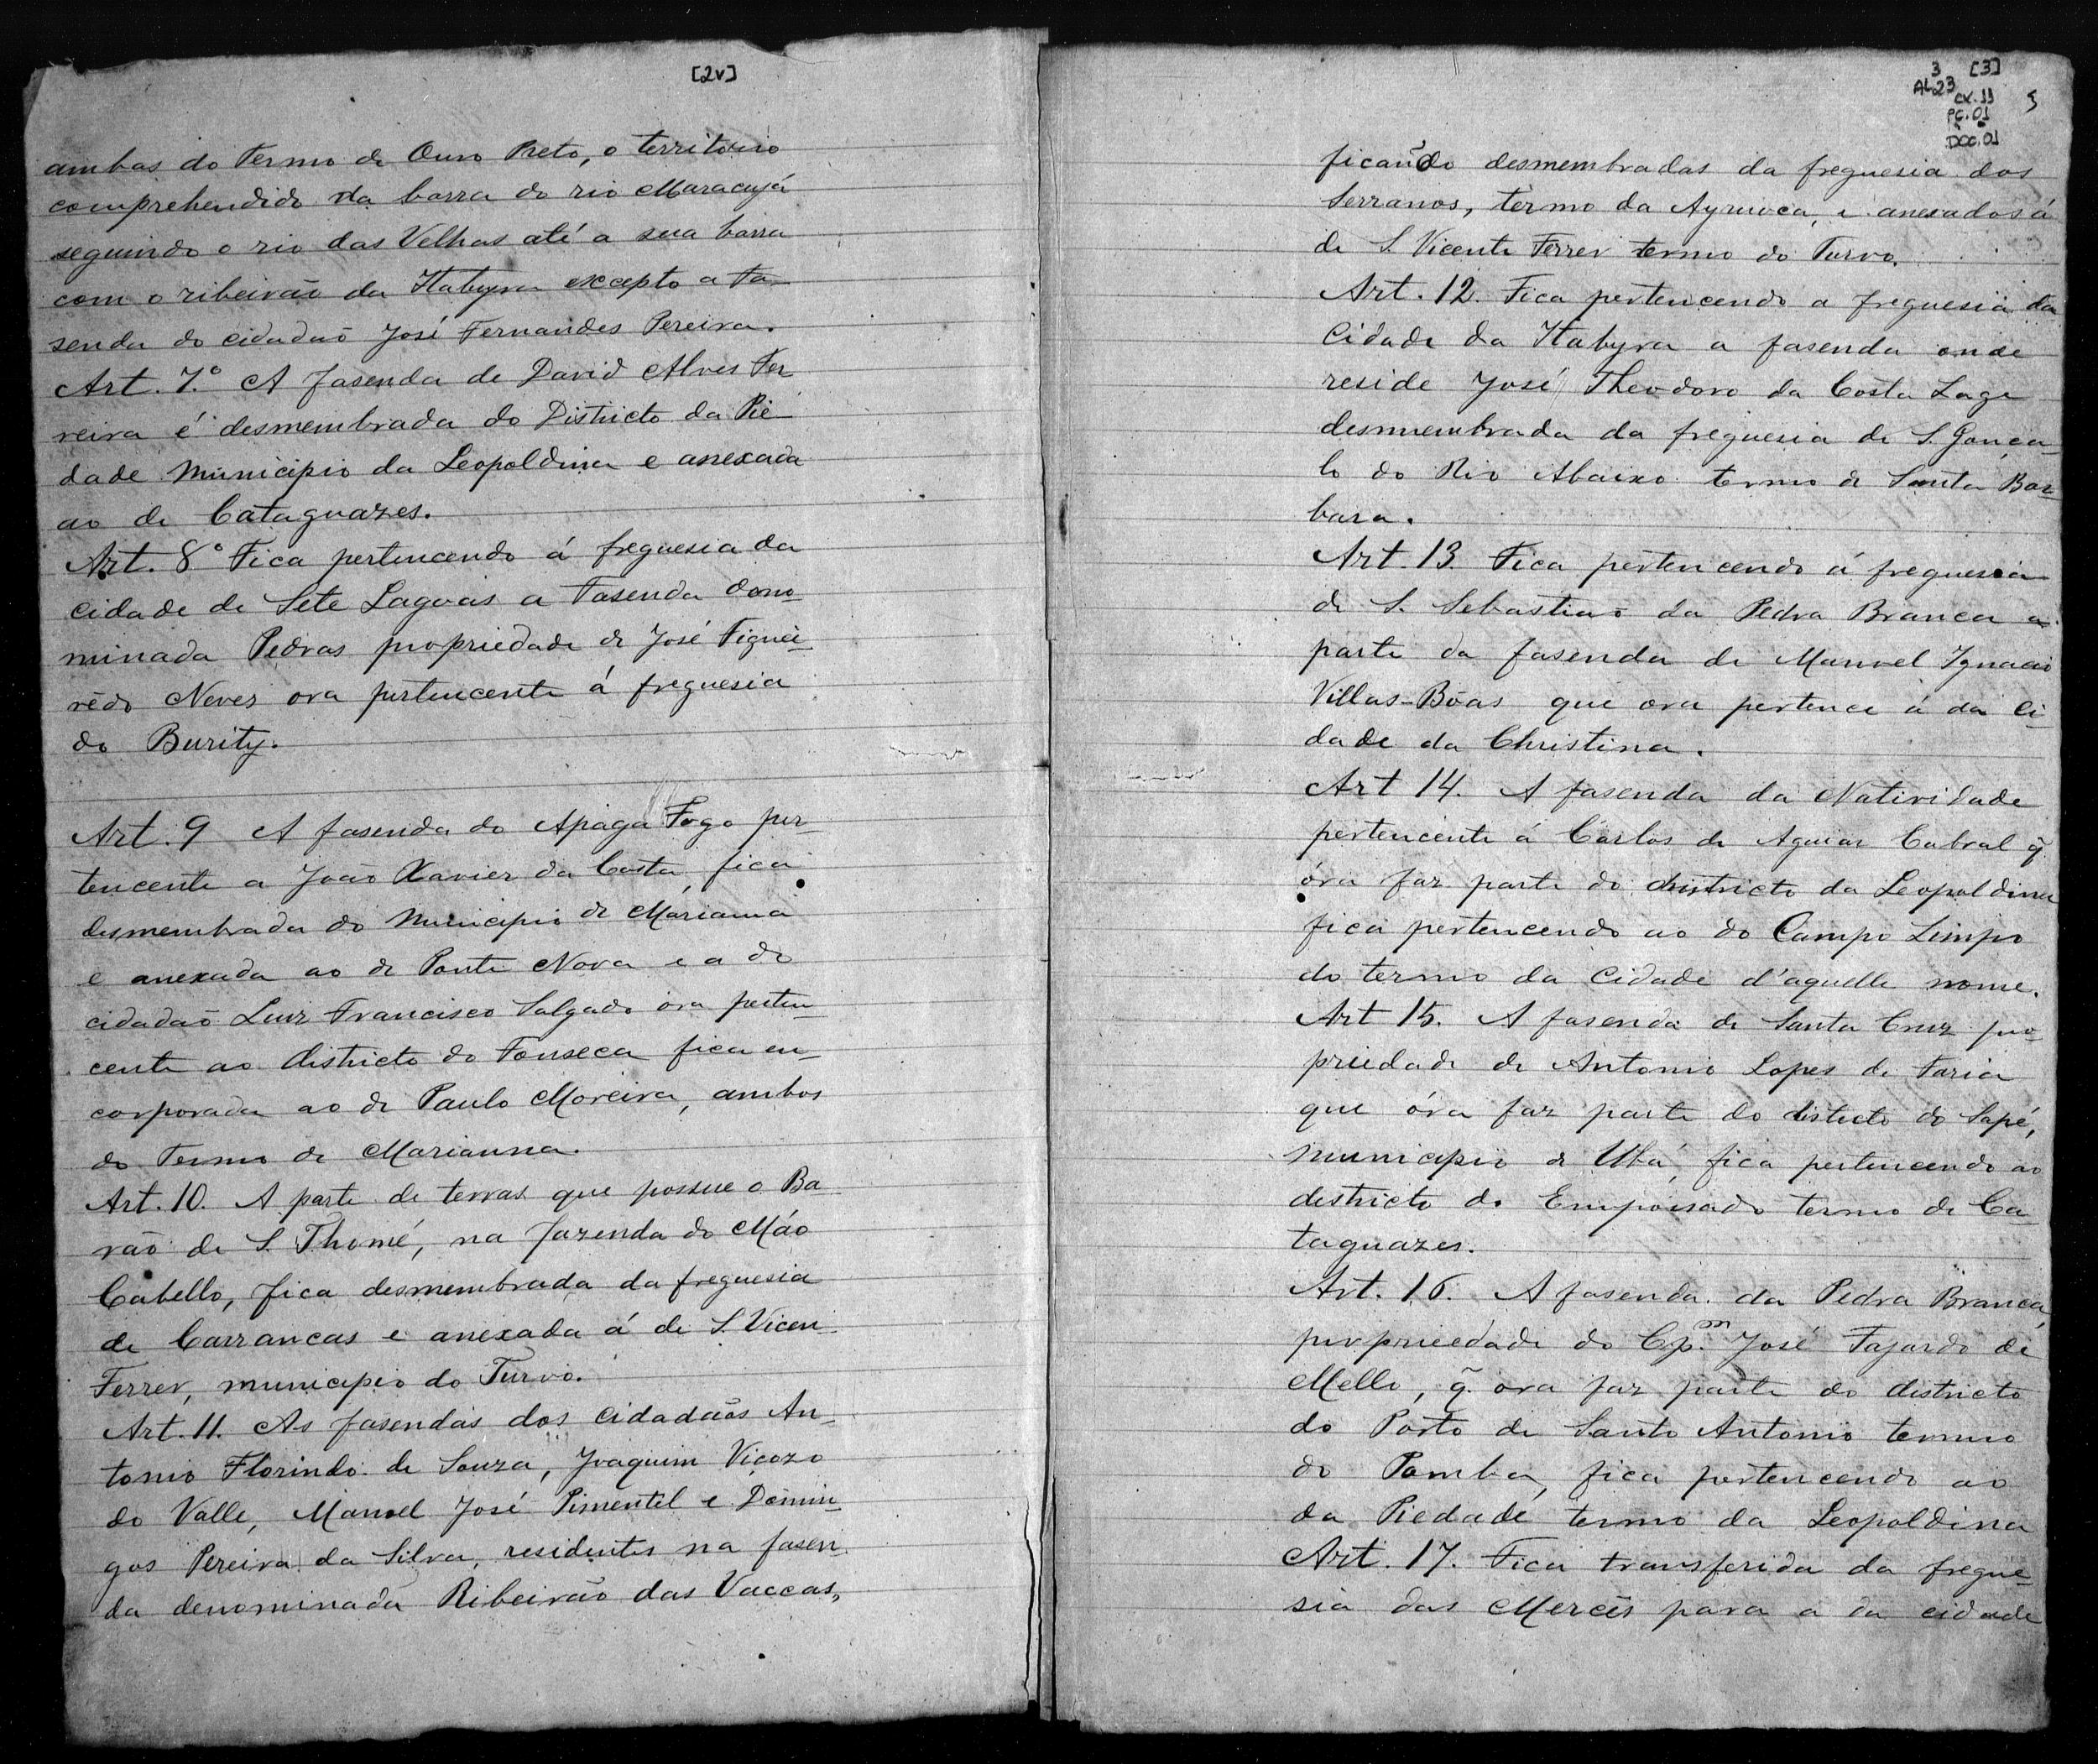 [2v]
ambas do Termo de Ouro Preto, o territorio
comprehendido na barra do rio Maracujá
seguindo o rio das Velhas até a sua barra
com o ribeirão da Itabyra excepto a fa-
senda do cidadaõ José Fernandes Pereira.
Art. 7.º A fasenda de David Alves Fer
reira é desmembrada do Districto da Pie
dade municipio da Leopoldina e anexada
ao de Cataguazes.
Art. 8º Fica pertencendo á freguesia da
cidade de Sete Lagoas a fasenda deno-
minada Pedras propriedade de José Figuei-
rêdo Neves ora pertencente á freguesia
do Burity.
Art. 9 A fasenda do Apaga Fogo per-
tencente a João Xavier da Costa fica
desmembrada do municipio de Marianna
e anexada ao de Ponte Nova e a do
cidadaõ Luiz Francisco Salgado óra perten-
cente ao districto do Fonseca fica en-
corporada ao de Paulo Moreira, ambos
do Termo de Marianna.
Art. 10. A parte de terras que possue o Ba
rão de S. Thomé, na fazenda do Máo
Cabello, fica desmembrada da freguesia
de Carrancas e anexada á de S. Vicen
Ferrer, municipio do Turvo.
Art. 11. As fasendas dos cidadaõs An-
tonio Florindo de Souza, Joaquim Viçozo
do Valle, Manoel José Pimentel e Domin-
gos Pereira da Silva, residentes na fasen
da denominada Ribeirão das Vaccas,
3 [3]
AL23
cx. 11
PC. 01
DOC. 01
ficando desmembradas da freguesia dos
Serranos, termo da Ayruoca, e anexados á
de S. Vicente Ferrer termo do Turvo.
Art. 12. Fica pertencendo a freguesia da
Cidade da Itabyra a fasenda onde
reside José Theodoro da Costa Lage
desmembrada da freguesia de S. Gonça-
lo do Rio Abaixo termo de Santa Bar
bara.
Art. 13. Fica pertencendo á freguesia
de S. Sebastiaõ da Pedra Branca a
parte da fasenda de Manoel Ignacio
Villas-Bôas que ora pertence á da Ci
dade da Christina.
Art 14. A fasenda da Natividade
pertencente á Carlos de Aguiar Cabral q̃
óra faz parte do districto da Leopoldina
fica pertencendo ao do Campo Limpo
do termo da Cidade d'aquelle nome.
Art 15. A fasenda de Santa Cruz pro-
priedade de Antonio Lopes de Faria
que óra faz parte do districto do Sapé,
municipio de Ubá, fica pertencendo ao
districto do Empoisado termo de Ca-
taguazes.
Art. 16. A fasenda da Pedra Branca
propriedade do Cp.m José Fajardo de
Mello, q̃ ora faz parte do districto
do Porto de Santo Antonio termo
do Pomba, fica pertencendo ao
da Piedade termo da Leopoldina
Art. 17. Fica transferida da fregue-
sia das Mercês para a da cidade